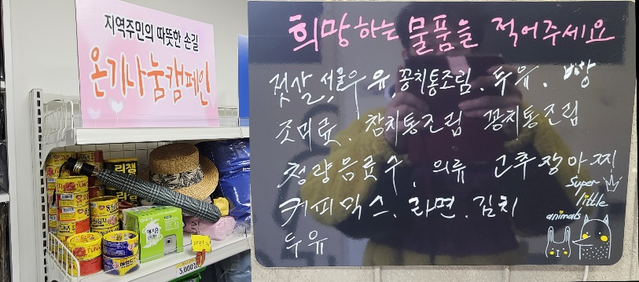 지역주민의 따뜻한 손길
온기나눔캠페인
리챔
희망하는 물품을 적어주세요
젓갈, 서울우유 꽁치통조림. 두유. 빵
조미료, 참치통조림 꽁치통조림
청량음료수, 의류 고추장아찌
커피믹스. 라면. 김치
두유
super
little
animals